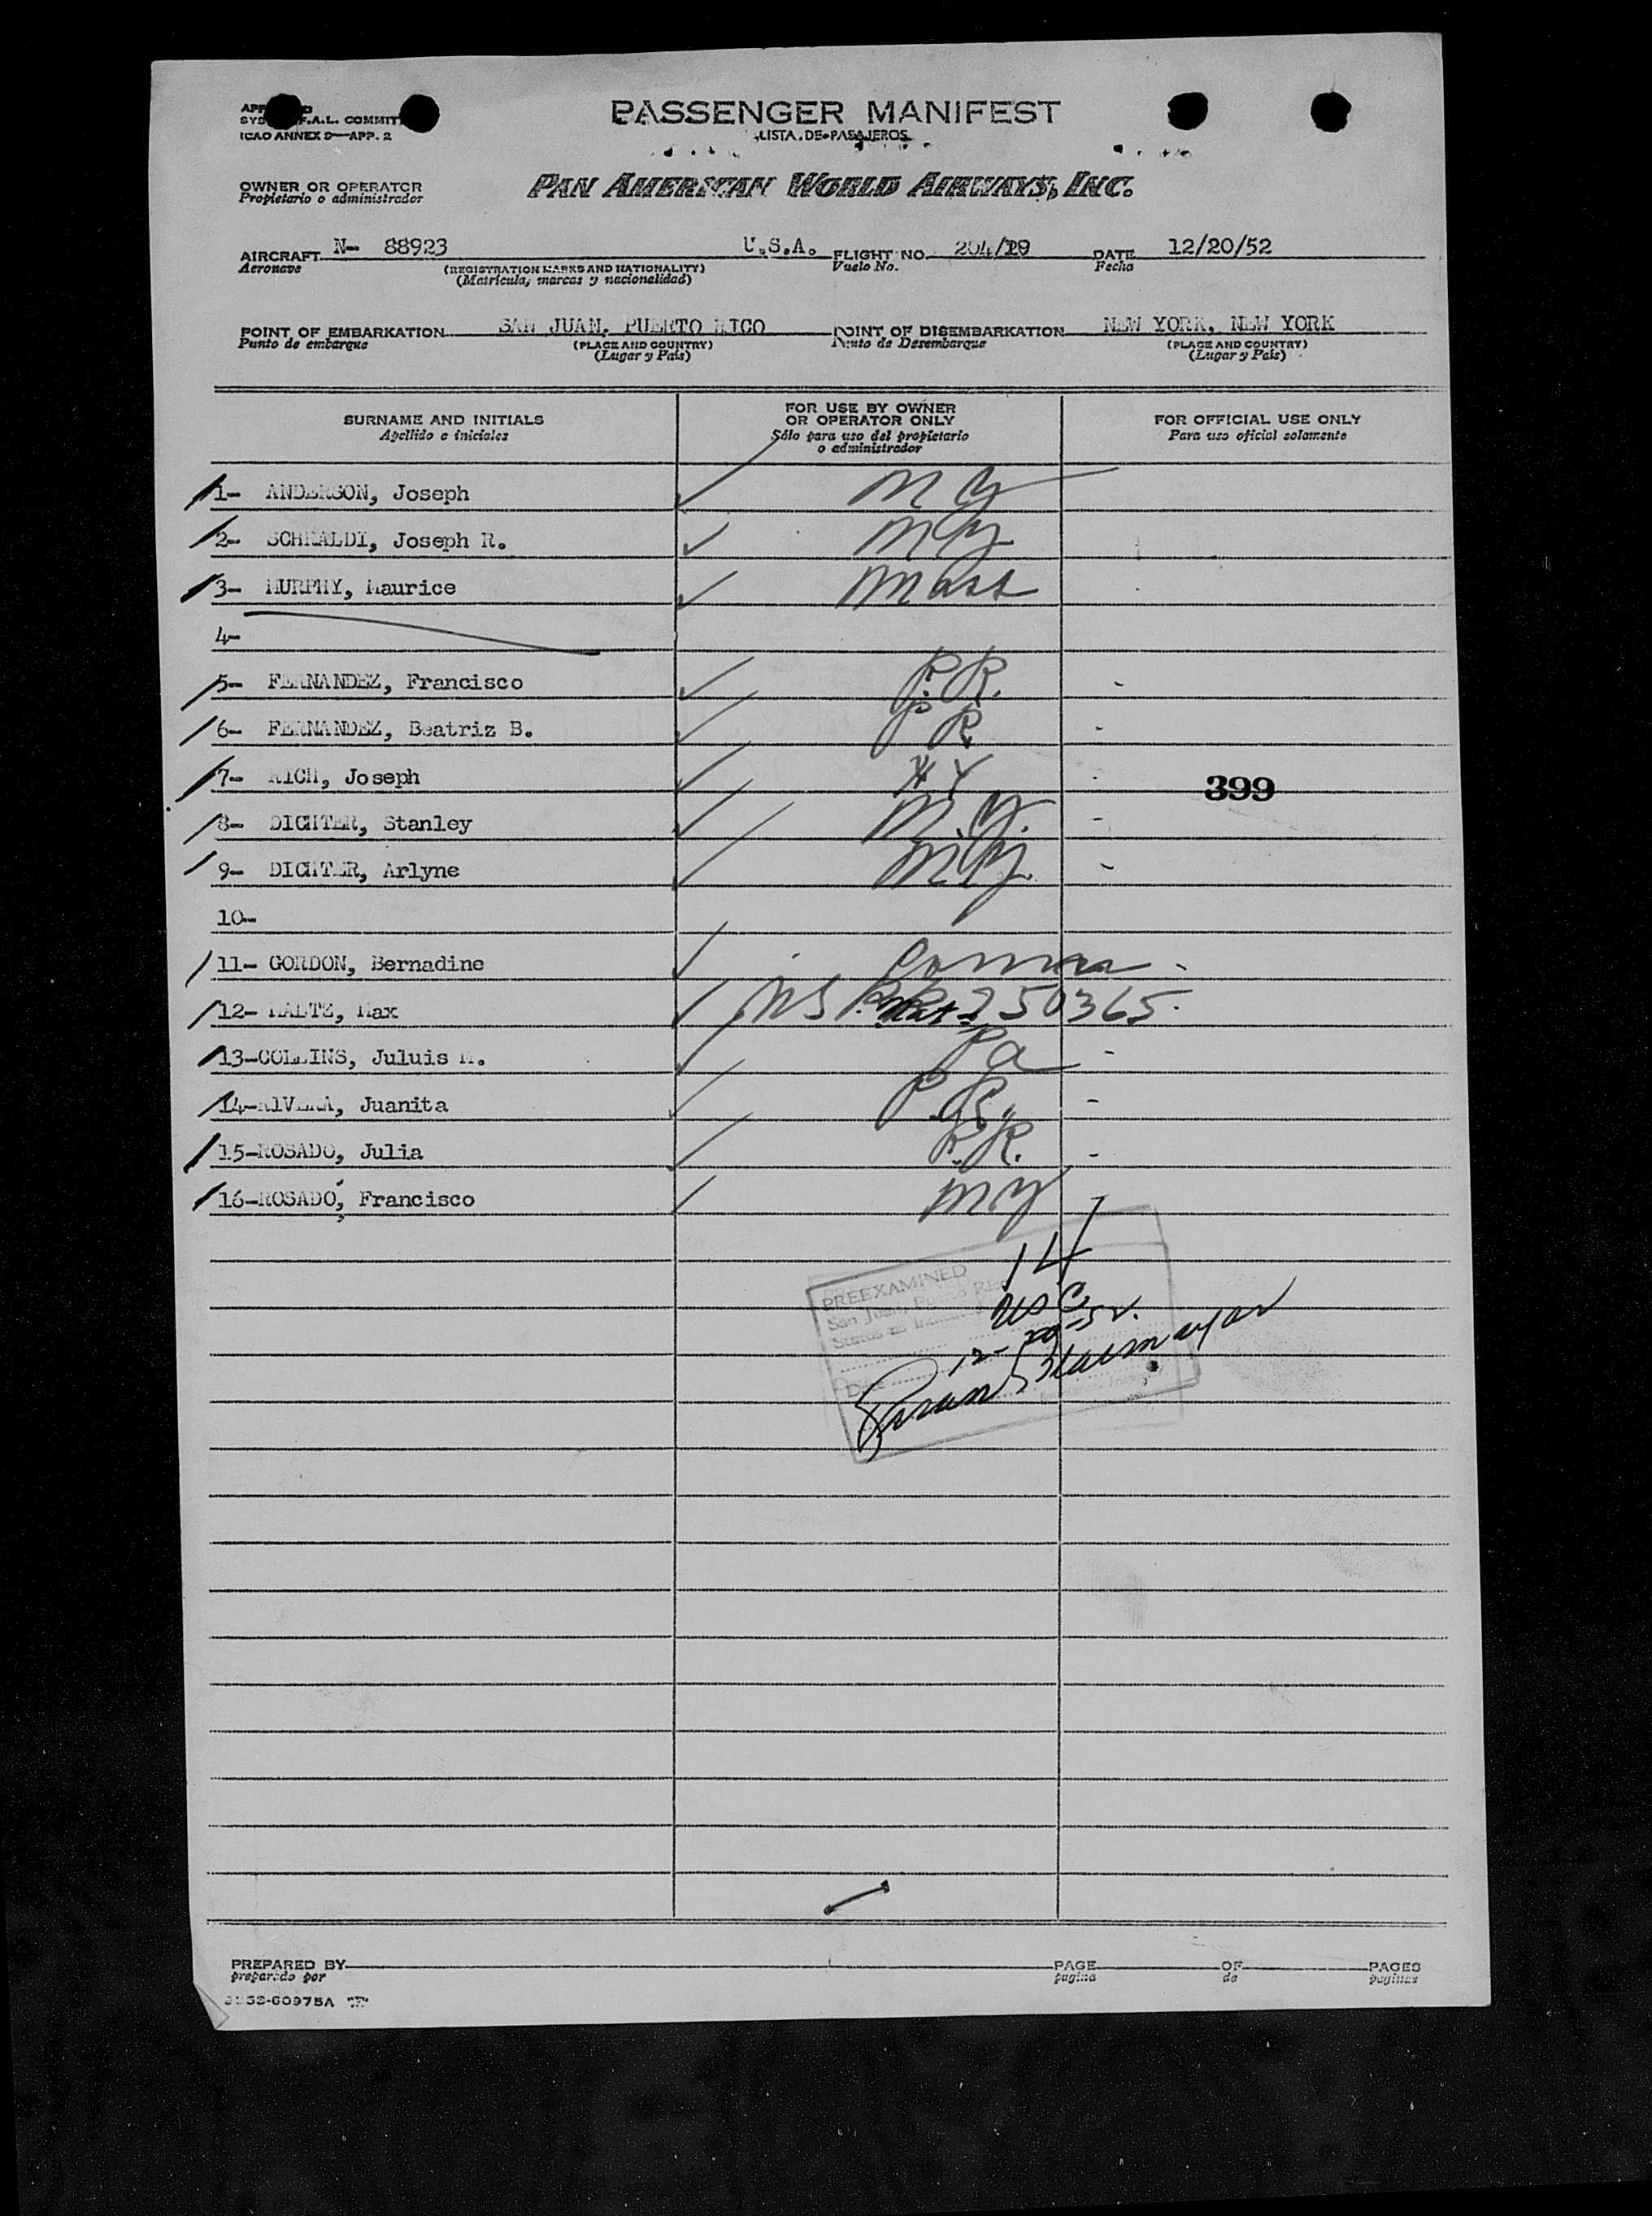 PASSENGER MANIFEST
LISTA DE PASAJEROS
F.A.L.
ICAO ANNEX 9—APP. 2
OWNER OR OPERATOR
Propietario o administrador
PAN AMERICAN WORLD AIRWAYS, INC.
AIRCRAFT N- 88923 U.S.A. FLIGHT NO. 204/19 DATE 12/20/52
Aeronave (REGISTRATION MARKS AND NATIONALITY) Vuelo No. Fecha
(Matrícula, marcas y nacionalidad)
POINT OF EMBARKATION SAN JUAN, PUERTO RICO POINT OF DISEMBARKATION NEW YORK, NEW YORK
Punto de embarque (PLACE AND COUNTRY) Punto de Desembarque (PLACE AND COUNTRY)
(Lugar y País) (Lugar y País)
SURNAME AND INITIALS FOR USE BY OWNER OR OPERATOR ONLY FOR OFFICIAL USE ONLY
Apellido e iniciales Sólo para uso del propietario o administrador Para uso oficial solamente
1- ANDERSON, Joseph NY
2- SCHNALDI, Joseph R. NY
3- MURPHY, Maurice Mass
4-
5- FERNANDEZ, Francisco P.R.
6- FERNANDEZ, Beatriz B. PR
7- RICH, Joseph NY
399
8- DICHTER, Stanley N.Y.
9- DICHTER, Arlyne NY
10-
11- GORDON, Bernadine Conn
12- MALTZ, Max 250365
13-COLLINS, Juluis M. Pa
14-RIVERA, Juanita P.R.
15-ROSADO, Julia P.R.
16-ROSADO, Francisco NY
14
PREEXAMINED
San Juan, Puerto Rico
Status as Indicated
USC
Date 12-20-52
PREPARED BY PAGE OF PAGES
preparado por pagina de paginas